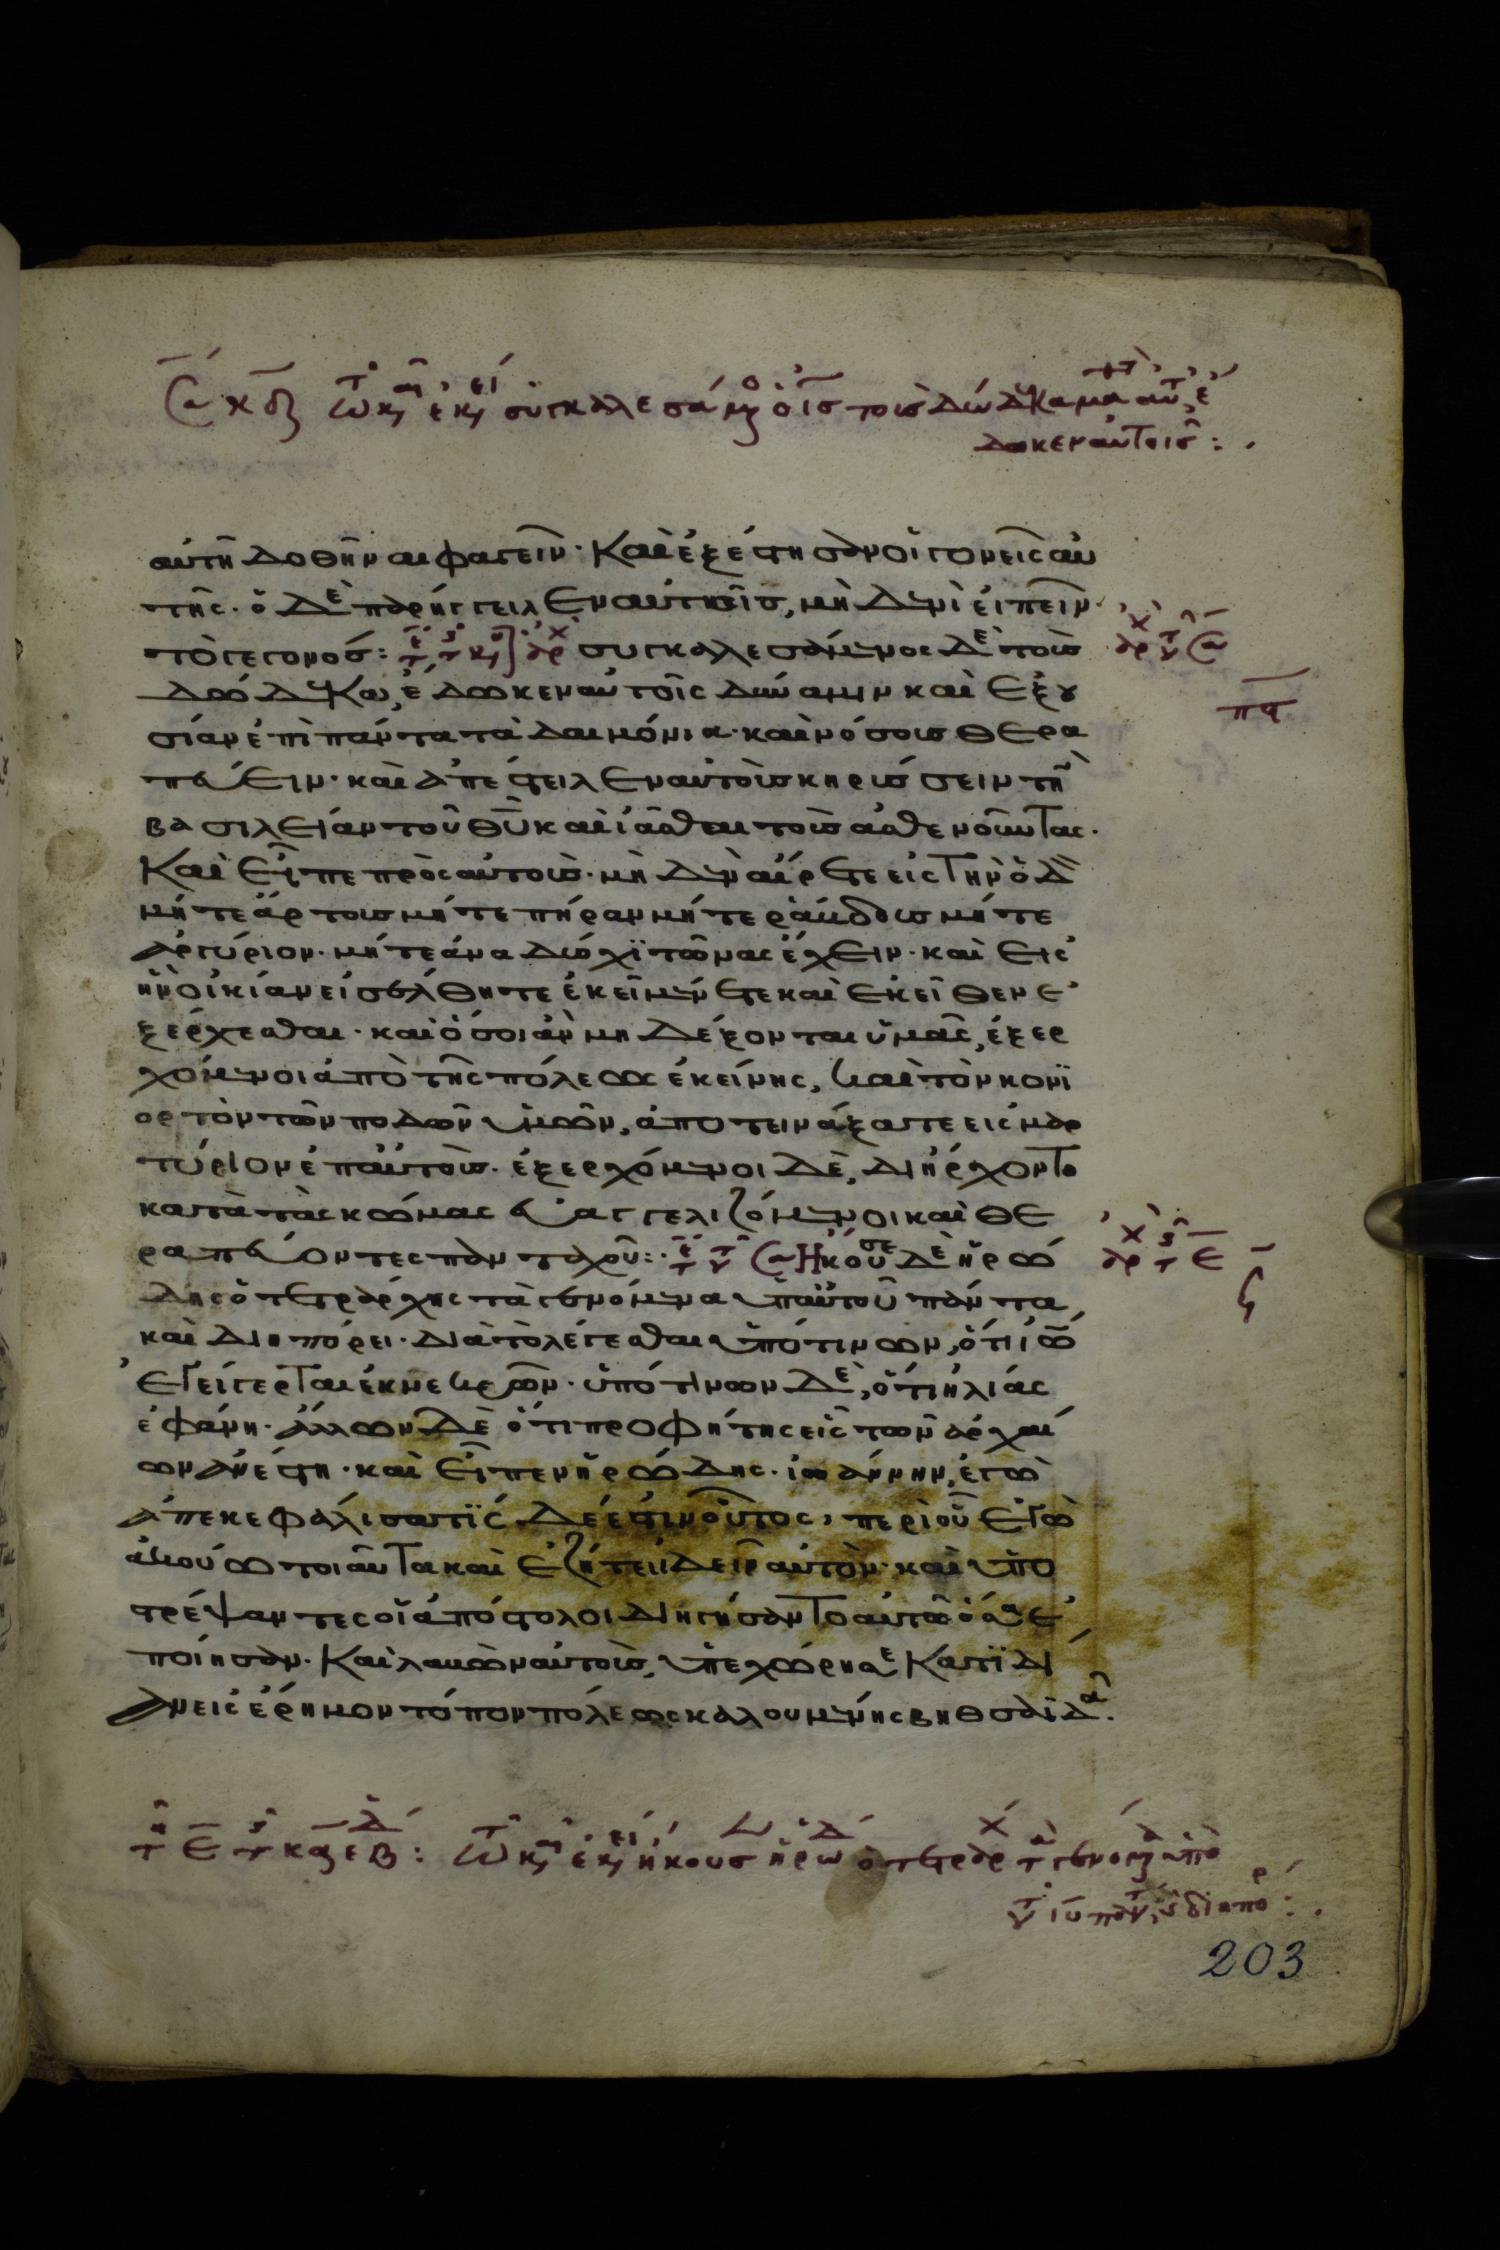 τῶ κῶ ἐκείνω συγκαλεσάμενος ὁ ἰς τοὺς δώδεκα μαθητὰς αὐτοῦ, ἔ
δωκεν αὐτοῖς:.
αὐτῆ δοθῆναι φαγεῖν· Καὶ ἐξέστησαν οἱ γονεῖς αὐ
τῆς. ὁ δὲ παρήγγειλεν αὐτοῖς, μὴ δενὶ εἰπεῖν
τὸ γεγονός: συγκαλεσάμενος δὲ τοὺς
δώδεκα, ἔδωκεν αὐτοῖς δύναμιν καὶ ἐξου
σίαν ἐπὶ πάντα τὰ δαιμόνια· καὶ νόσους θερα
πεύειν· καὶ ἀπέστειλεν αὐτοὺς κηρύσσειν τὴν
βασιλείαν τοῦ θῦ καὶ ἰᾶσθαι τοὺς ἀσθενοῦντας.
Καὶ εἶπε πρὸς αὐτούς· μὴ δὲν αἴρετε εἰς τὴν ὁδὸν
μήτε ἄρτους μήτε πήραν μήτε ῥάβδους μήτε
ἀργύριον· μήτε ἀνα δύο χϊτῶνας ἔχειν· καὶ εἰς
ἣν οἰκίαν εἰσέλθητε ἐκεῖ μένετε καὶ ἐκεῖθεν ἐ
ξέρχεσθαι· καὶ ὅσοι ἂν μη δέξονται ὑμᾶς, ἐξερ
χόμενοι ἀπὸ τῆς πόλεως ἐκείνης, καὶ τὸν κονϊ
ορτὸν τῶν ποδῶν ὑμῶν, ἀποτεινάξατε εἰς μαρ
τύριον ἐπαὐτούς. ἐξερχόμενοι δὲ, διήρχοντο
κατὰ τὰς κώμας εὐαγγελιζόμενοι καὶ θε
ραπεύοντες πανταχοῦ:· Ηκουσε δὲ ἡρώ
δης ὁ τετράρχης τὰ γενόμενα ὑπαὐτοῦ πάντα,
καὶ διηπόρει· διὰ τὸ λέγεσθαι ὑπό τινων, ὅτι ἰω
ἐγείγερται ἐκ νεκρῶν· ὑπό τινων δὲ, ὅτι ἠλίας
ἐφάνη· ἄλλων δὲ ὅτι προφήτης εἷς τῶν ἀρχαί
ων ἀνέστη· καὶ εἶπεν ἡρώδης. ἰωάννην, ἐγὼ
ἀπεκεφάλισα τϊς δέ ἐστιν οὗτος, περὶ οὗ ἐγὼ
ἀκούω τοιαῦτα καὶ ἐζήτει ἰδεῖν αὐτὸν· καὶ ὑπο
στρέψαντες οἱ ἀπόστολοι διηγήσαντο αὐτῶ ὅσα ἐ
ποίησαν. Καὶ λαβὼν αὐτοὺς, ὑπεχώρησε κατϊδί
αν εἰς ἔρημον τόπον πόλεως καλουμένης βηθσαϊδά.
τῶ κῶ ἐκείνω ἤκουσεν ἡρώδης ὁ τετράρχης τὰ γενόμενα ὑπὸ
τοῦ ἰῦ πάντα, καὶ διηπόρει:.
203